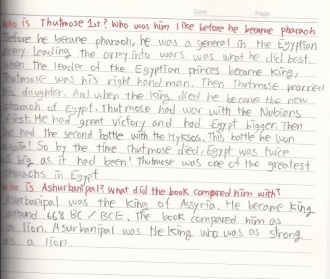 Date Page
who is Thutmose 1st? Who was him like before he became pharaoh
Before he became pharaoh, he was a general in the Egyptian
army. Leading the army into wars was what he did best.
when the leader of the Egyptian princes became King,
Thutmose was his right hand man. Then Thutmose married
his daughter. And when the King died he became the new
pharaoh of Egypt. Thutmose had war with the Nubians
first. He had great victory and had Egypt bigger. Then
he had the second battle with the Hyksos. This battle he won
again! So by the time Thutmose died, Egypt was twice
big as it had been! Thutmose was one of the greatest
pharaohs in Egypt
who is Ashurbanipal? what did the book compared him with?
Asurbanipal was the King of Assyria. He became King
around 668 BC / BCE. The book compared him as
a lion. Asurbanipal was the King who was as strong
as a lion.